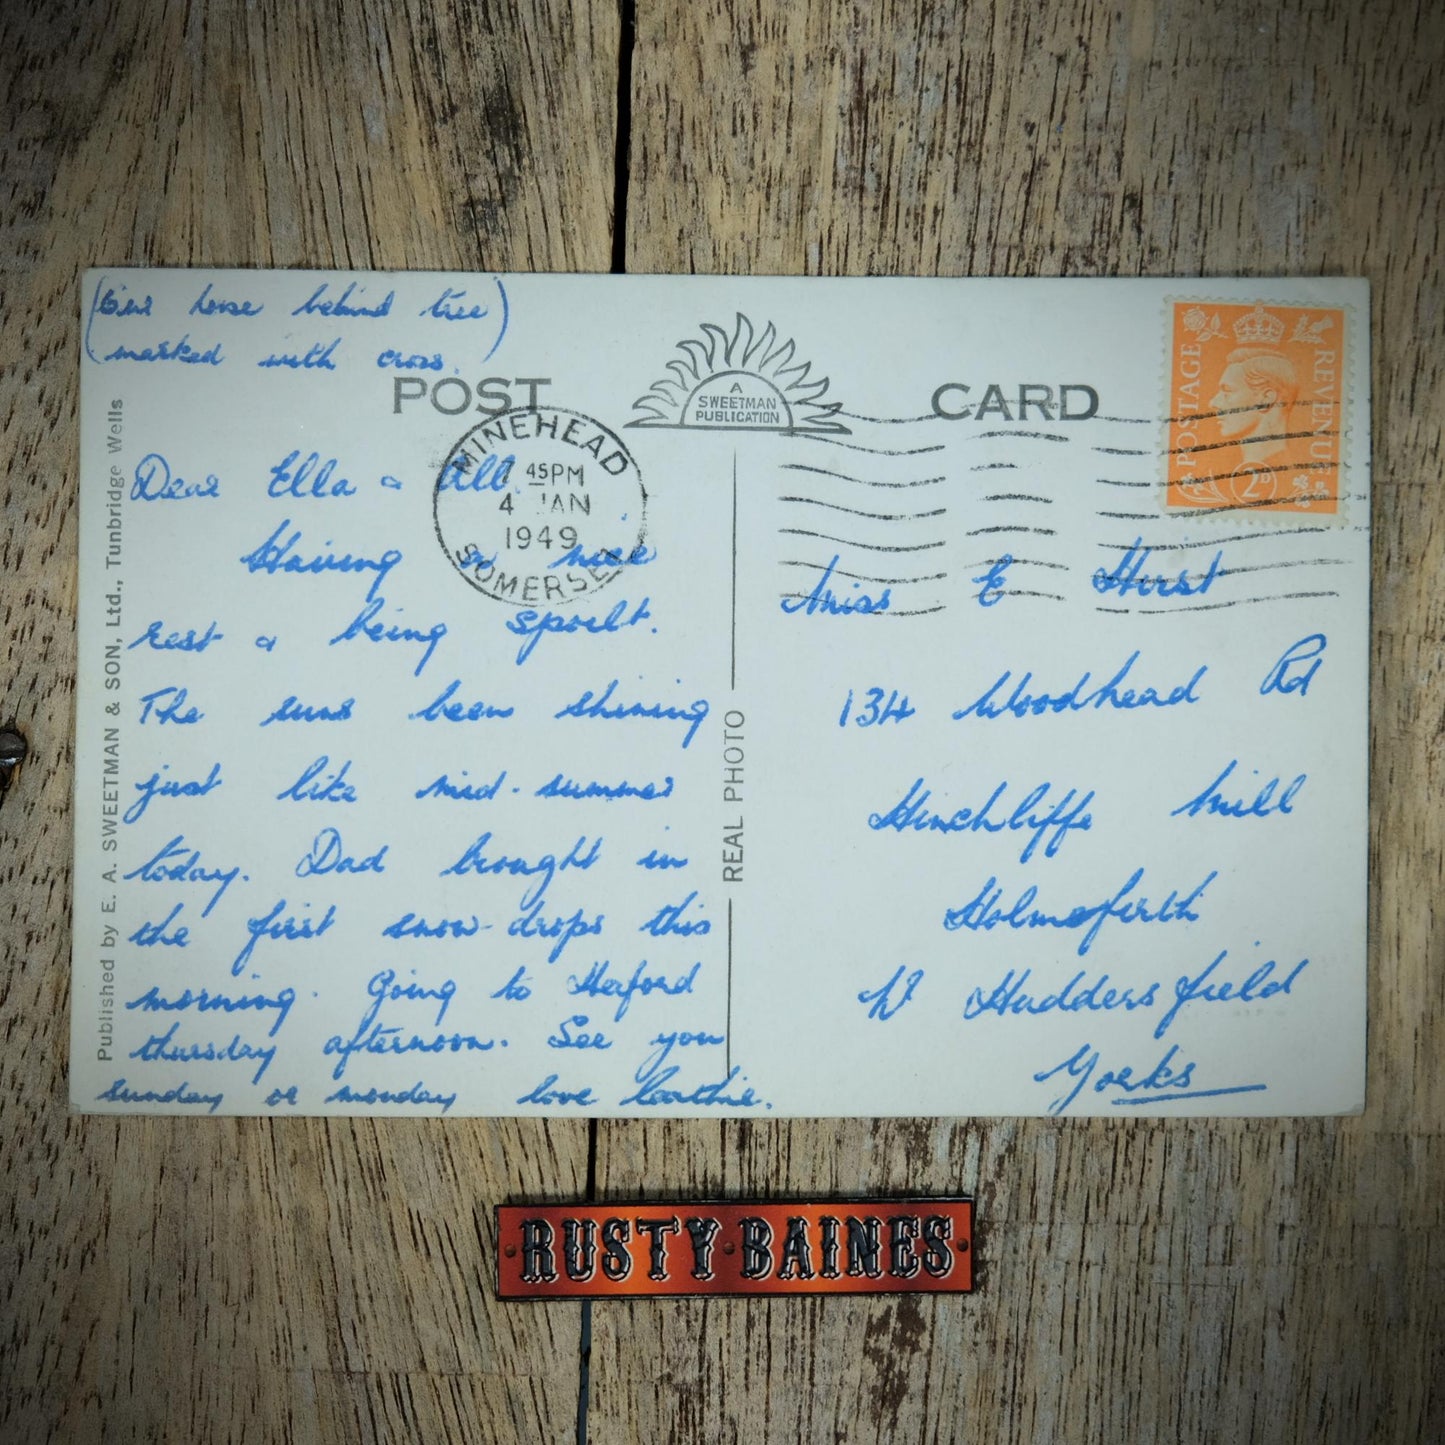 (Our house behind tree)
(marked with cross.)
POST CARD
A
SWEETMAN
PUBLICATION
POSTAGE
REVENUE
2D
MINEHEAD
7 45PM
4 JAN
1949
SOMERSET
Published by E. A. SWEETMAN & SON, Ltd., Tunbridge Wells
Dear Ella & All.
Having a nice
rest & being spoilt.
The suns been shining
just like mid-summer
today. Dad brought in
the first snow-drops this
morning. Going to Heford
thursday afternoon. See you
sunday or monday love
REAL PHOTO
Miss E Hirst
134 Woodhead Rd
Hinchliffe Mill
Holmefirth
Nr Huddersfield
Yorks
RUSTY·BAINES